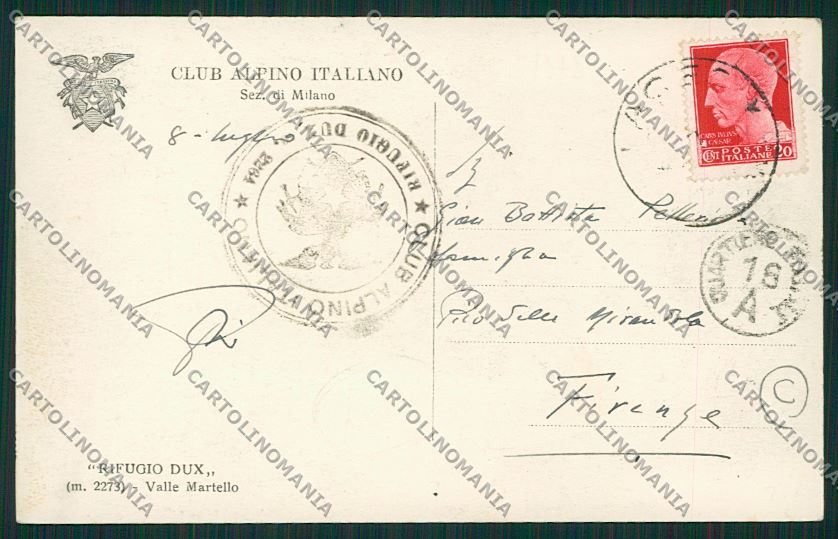 CLUB ALPINO ITALIANO
Sez. di Milano
8 - luglio
RIFUGIO DUX
2264
★ CLUB ALPINO ITALIANO ★
CAIVS IVLIVS
CAESAR
CENT. POSTE 20
ITALIANE
Gian Battista
famiglia
Pico della Mirandola
Firenze
16
A
C
"RIFUGIO DUX„
(m. 2273) - Valle Martello
CARTOLINOMANIA